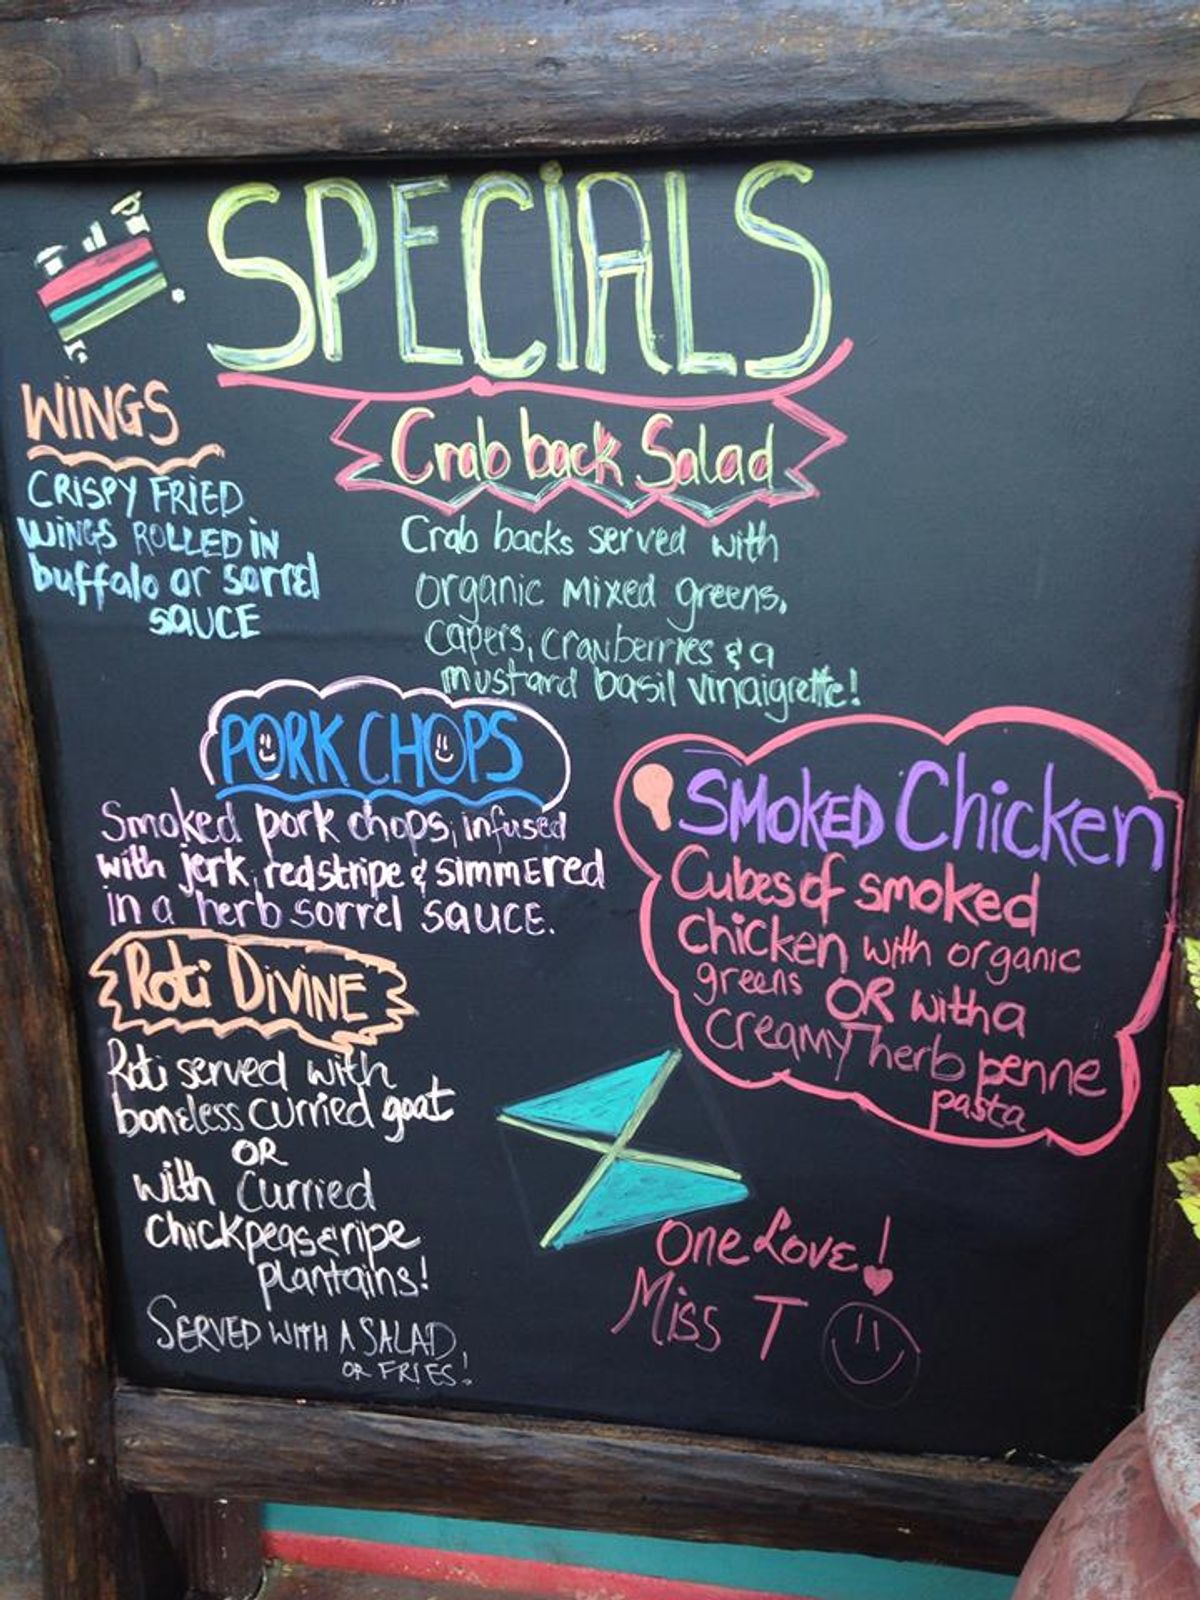 SPECIALS
WINGS
CRISPY FRIED
WINGS ROLLED IN
buffalo or sorrel
SAUCE
Crab back Salad
Crab backs served with
organic mixed greens,
capers, cranberries & a
mustard basil vinaigrette!
PORK CHOPS
Smoked pork chops, infused
with jerk, redstripe & simmered
in a herb sorrel sauce.
SMOKED Chicken
Cubes of smoked
chicken with organic
greens OR with a
creamy herb penne
pasta
Roti DIVINE
Roti served with
boneless curried goat
OR
with curried
chickpeas & ripe
plantains!
SERVED WITH A SALAD
OR FRIES!
One Love!
Miss T